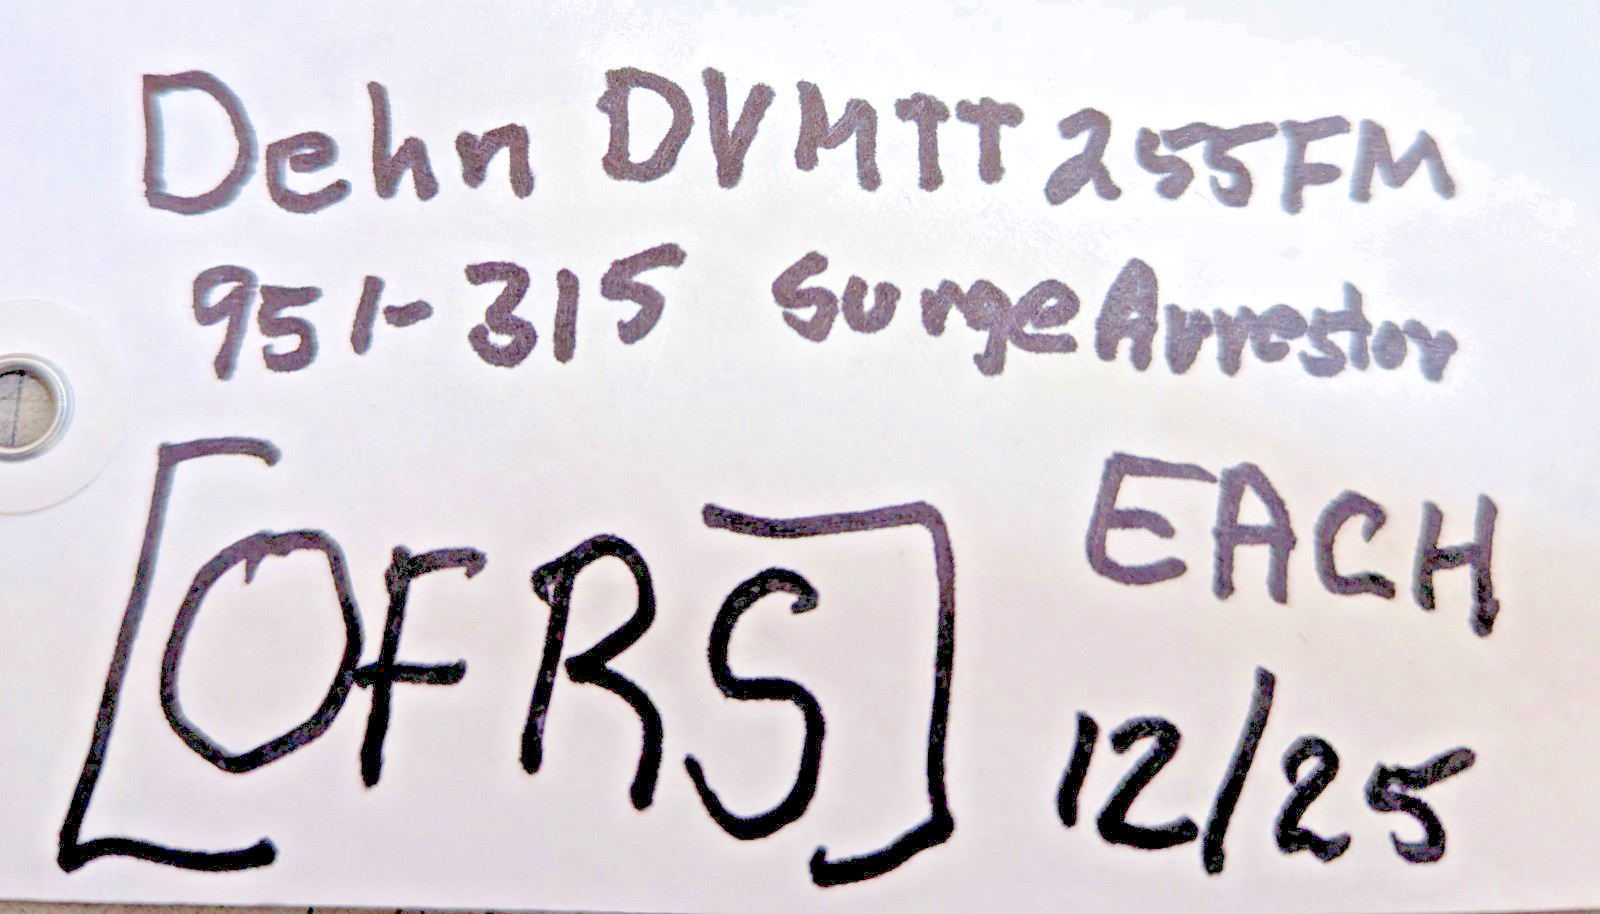 Dehn DVMTT 255FM
951-315 Surge Arrestor
EACH
[OFRS]
12/25